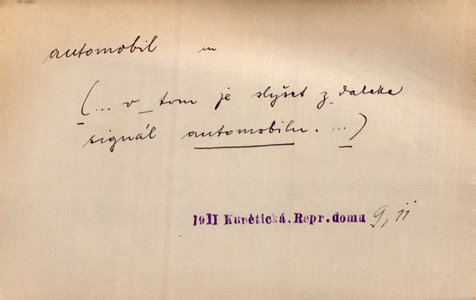 automobil m
(... v_tom je slyšet z_daleka
signál automobilu. ...)
1911 Kunětická. Repr. domu 9, 11